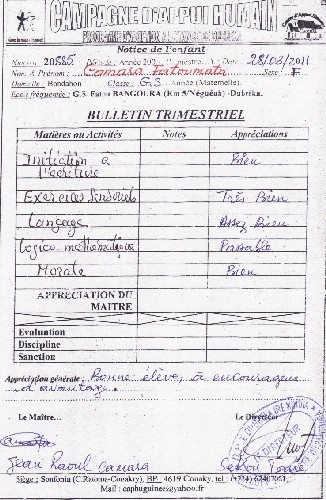 CAMPAGNE D'APPUI HUMAIN
Notice de l'enfant
20885 Période : Année 200 Date : 28/03/2011
Nom & Prénom : Camara Fatoumata Sexe : F
Domicile : Bondabon Classe : G.S Année (Maternelle).
Ecole fréquentée : G.S. Fatou BANGOURA (Km 5/Néguéya) -Dubréka.
BULLETIN TRIMESTRIEL
Matières ou Activités Notes Appréciations
Initiation à l'écriture Bien
Exercices Sensoriels Très Bien
Langage Assez Bien
Logico-mathématique Passable
Morale Bien
APPRECIATION DU MAITRE
Evaluation
Discipline
Sanction
Appréciation générale : Bonne élève, à encourager
d'avantage.
Le Maître… Le Directeur
Jean Raoul Camara Sékou Touré
Siège : Sonfonia (C.Ratoma-Conakry), BP : 4619 Conakry, tel
Mail : caphuguinee@yahoo.fr